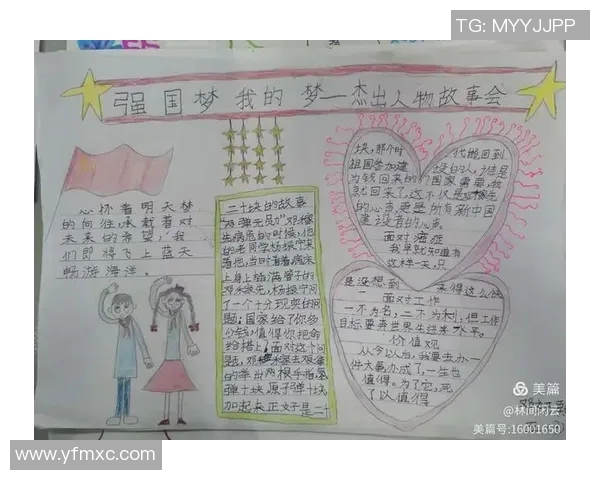 TG: MYYJJPP
强国梦 我的梦—杰出人物故事会
心怀着明天梦
的向往,承载着对
未来的希望,我
们即将飞上蓝天
畅游海洋。
二十块的故事
"两弹元勋"邓稼先
生病危的时候,他
的老同学杨振宁来
看他,当时看着病床
上身上插满管子的
邓稼先,杨振宁问
了一个十分现实的问
题:国家给了你多
少钱,值得你把命
给搭上?面对这个问
题,邓稼先
的举出两根手指:氢
弹十块,原子弹十块
加起来正好是二十
块,那个时代能回到
祖国参加建设的人,谁是
为钱回来的?国家需要,我
就回来了,这不仅是邓稼先
的心声,更是所有新中国
建设者的心声
面对海涯
我早就知道有
这样一天,只
是没想到来得这么快
面对工作
一不为名,二不为利,但工作
目标要奔世界先进水平。
价值观
从今以后,我要去办一
件大事,办成了,一生也
值得。为了它,死
了以值得
美篇
@林间闲云
美篇号:16001650
www.yfmxc.com